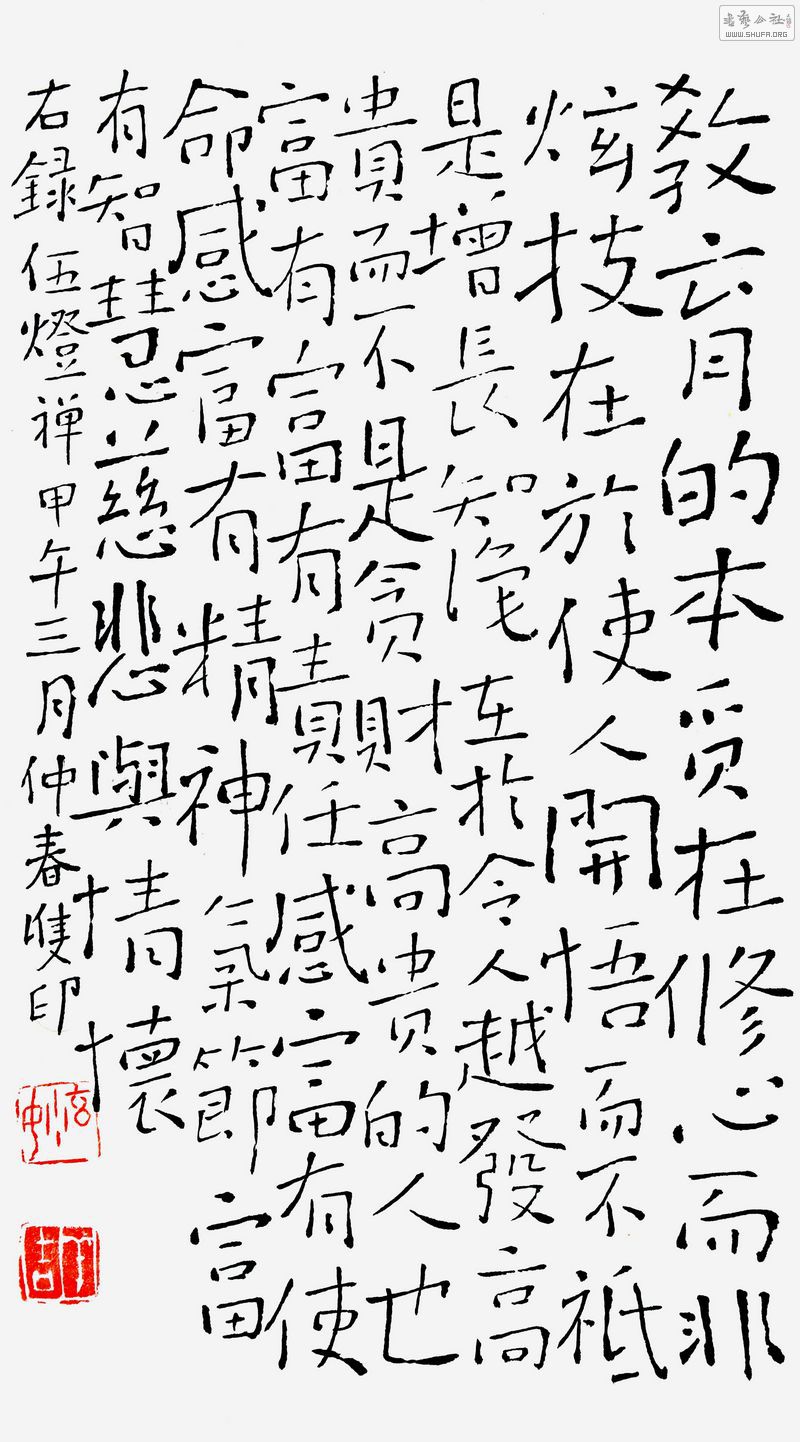 書藝公社
WWW.SHUFA.ORG
教育的本质在修心而非
炫技在於使人開悟而不祇
是增長知識在於令人越發高
貴而不是貪財高貴的人也
富有富有責任感富有使
命感富有精神氣節富
有智慧慈悲與情懷
右録伍燈禅甲午三月仲春印